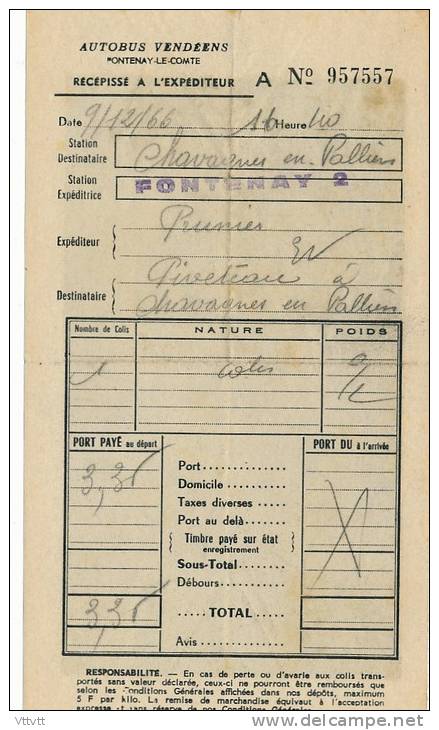 AUTOBUS VENDÉENS
FONTENAY-LE-COMTE
RÉCÉPISSÉ A L'EXPÉDITEUR A Nº 957557
Date 9/12/66 16 Heure 40
Station Destinataire Chavagnes en Palliers
Station Expéditrice FONTENAY 2
Expéditeur Prunier
Destinataire Piveteau à
Chavagnes en Palliers
Nombre de Colis NATURE POIDS
1 colis
PORT PAYÉ au départ PORT DU à l'arrivée
3,35 Port
Domicile
Taxes diverses
Port au delà
Timbre payé sur état
enregistrement
Sous-Total
Débours
3,35 TOTAL
Avis
RESPONSABILITÉ. — En cas de perte ou d'avarie aux colis trans-
portés sans valeur déclarée, ceux-ci ne pourront être remboursés que
selon les Conditions Générales affichées dans nos dépôts, maximum
5 F par kilo. La remise de marchandise équivaut à l'acceptation
expresse et sans réserve de nos Conditions Générales.
Vttvtt
delcampe.net